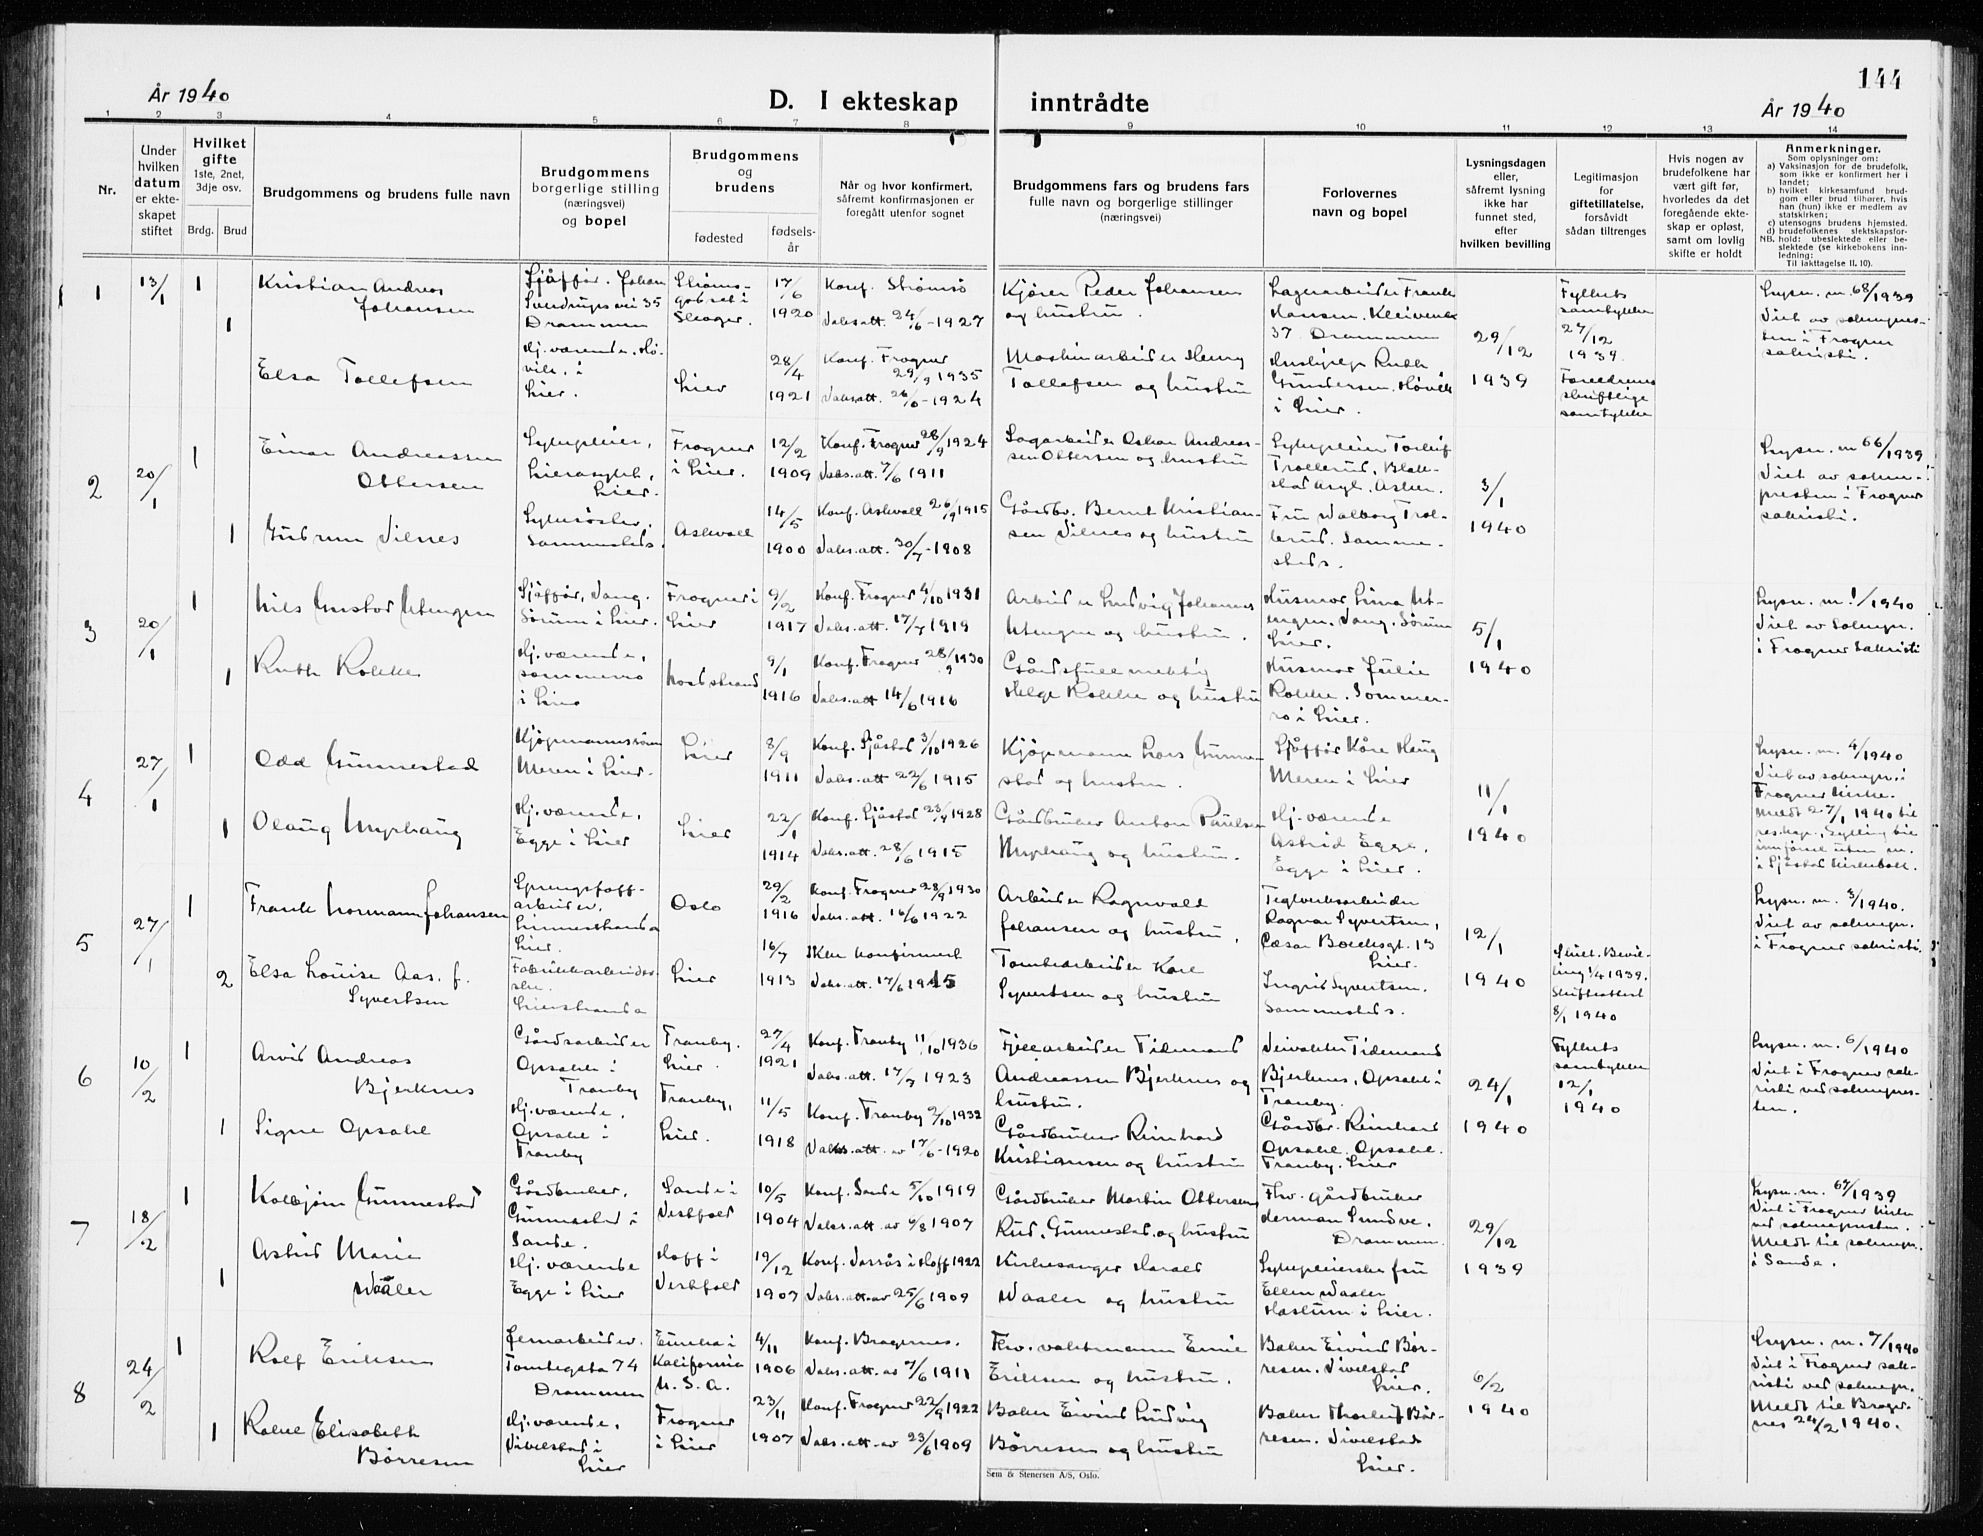 144
År 1940
D. I ekteskap inntrådte
År 1940
1 2 3 4 5 6 7 8 9 10 11 12 13 14
Nr.
Under hvilken datum er ekteskapet stiftet
Hvilket gifte
1ste, 2net, 3dje osv.
Brdg. Brud
Brudgommens og brudens fulle navn
Brudgommens
borgerlige stilling
(næringsvei)
og bopel
Brudgommens
og
brudens
fødested
fødselsår
Når og hvor konfirmert,
såfremt konfirmasjonen er
foregått utenfor sognet
Brudgommens fars og brudens fars
fulle navn og borgerlige stillinger
(næringsvei)
Forlovernes
navn og bopel
Lysningsdagen
eller,
såfremt lysning
ikke har
funnet sted,
efter
hvilken bevilling
Legitimasjon
for
giftetillatelse,
forsåvidt
sådan tiltrenges
Hvis nogen av
brudefolkene har
vært gift før,
hvorledes da det
foregående ekte-
skap er opløst,
samt om lovlig
skifte er holdt
Anmerkninger.
Som oplysninger om:
a) Vaksinasjon for de brudefolk,
som ikke er konfirmert her i
landet;
b) hvilket kirkesamfund brud-
gom eller brud tilhører, hvis
han (hun) ikke er medlem av
statskirken;
c) utensogns brudens hjemsted.
d) brudefolkenes slektskapsfor-
NB. hold: ubeslektede eller be-
slektede (se kirkebokens inn-
ledning:
Til iakttagelse II. 10).
1
13/1
1
Kristian Andreas
Johansen
Sjåfför. Johan
Sverdrupsvei 35
Drammen
Strøms-
godset i
Skoger.
17/6
1920
Konf. Strømsö
Vaks.att. 24/6-1927
Kjører Peder Johansen
og hustru.
Lagerarbeider Frank
Hansen, Kleivenk
37 Drammen
29/12
1939
Fylkets
samtykke
27/12
1939.
Foreldrenes
skriftlige
samtykke
Lysn. m. 68/1939
Viet av sokneprest-
en i Frogner
sakristi.
1
Elsa Tollefsen
Hj. værende, Hø-
vik, i
Lier.
Lier
28/4
1921
Konf. Frogner
29/9 1935
Vaks.att. 26/6-1924
Maskinarbeider Henry
Tollefsen og hustru
Husbyrge Ruth
Gundersen. Høvik
i Lier.
2
20/1
1
Einar Andreassen
Ottersen
Sykepleier,
Lierasyl,
Lier.
Frogner
i Lier.
12/2
1909
Konf. Frogner 28/9 1924
Vaks.att. 7/6 1911
Sagarbeider Oskar Andreas-
sen Ottersen og hustru
Sykepleier Torleif
Trollerud, Blak-
stad Asyl. Asker.
3/1
1940
Lysn. m 66/1939
Viet av sokne-
presten i Frogner
sakristi.
1
Gudrun Vilnes
Sykesøster,
Sammesteds.
Askvoll
14/5
1900
Konf. Askvoll 26/9 1915
Vaks.att. 30/7-1908
Gårdbr. Bernt Kristian-
sen Vilnes og hustru
Fru Valborg Trol-
lerud. Samme-
steds.
3
20/1
1
Nils Gustav Utengen
Sjåfför, Vang.
Sörum i Lier.
Frogner i
Lier
9/2
1917
Konf. Frogner 4/10 1931
Vaks.att. 17/7 1919
Arbeider Ludvig Johannes
Utengen og hustru.
Husmor Lina Ut-
engen. Vang. Sörum
Lier.
5/1
1940
Lysn. m. 1/1940
Viet av Soknepr.
i Frogner Sakristi
1
Ruth Rokke
Hj. værende,
sommerro
i Lier
9/1
1916
Konf. Frogner 28/9 1930
Vaks.att 14/6 1916
Gårdsfullmektig
Helge Rokke og hustru
Husmor Julie
Rokke. Sommer-
ro i Lier.
4
27/1
1
Odd Gunnestad
Kjøpmannssønn
Meren i Lier.
Lier
8/9
1911
Konf. Sjåstad 3/10 1926
Vaks.att 22/6 1915
Kjøpmann Lars Gunne-
stad og hustru.
Sjåfför Kåre Haug
Meren i Lier
11/1
1940
Lysn. m. 4/1940
Viet av soknepr. i
Frogner Kirke.
Meldt 27/1 1940 til
i Sjåstad Kirkebok.
1
Olaug Myrhaug
Hj. værende,
Egge i Lier
Lier
22/1
1914
Konf. Sjåstad 23/9 1928
Vaks.att. 28/6 1915
Gårdbruker Anton Paulsen
Myrhaug og hustru.
Hj. værende
Astrid Egge,
Egge i Lier.
5
27/1
1
Frank Normann Johansen
Sprengstoff-
arbeider,
Linnesstranda
Lier.
Oslo
29/2
1916
Konf. Frogner 28/9 1930
Vaks.att. 16/6 1922
Arbeider Ragnvald
Johansen og hustru.
Teglverksarbeider
Ragnar Syvertsen,
Cæsar Boecksgt. 13
Lier.
12/1
1940
Lysn. m. 3/1940.
Viet av soknepr.
i Frogner sakristi.
2
Elsa Louise Aas. f.
Syvertsen
Fabrikkarbeider-
ske.
Lierstranda
Lier
16/7
1913
Ikke konfirmert
Vaks.att. 17/6 1915
Tomtearbeider Karl
Syvertsen og hustru
Ingrid Syvertsen.
Sammesteds.
Skiet. Bevil-
ling 1/4 1939.
Skifteattest
8/1 1940
6
10/2
1
Arvid Andreas
Bjerknes
Gårdsarbeider
Opsahl i
Tranby
Tranby.
Lier.
27/4
1921
Konf. Tranby 11/10 1936
Vaks.att. 17/7 1923
Fjellarbeider Tidemand
Andreassen Bjerknes og
hustru.
Veivokter Tidemand
Bjerknes, Opsahl i
Tranby.
24/1
1940
Fylkets
samtykke
12/1
1940
Lysn. m. 6/1940
Viet i Frogner sak-
risti ved sokneprest-
en.
1
Signe Opsahl
Hj. værende,
Opsahl i
Tranby
Tranby,
Lier.
11/5
1918
Konf. Tranby 2/10 1932
Vaks.att. av 17/6-1920
Gårdbruker Reinhard
Kristiansen og hustru
Gårdbr. Reinhard
Opsahl, Opsahl.
Tranby. Lier
7
18/2
1
Kolbjörn Gunnestad
Gårdbruker.
Gunnestad i
Sande.
Sande i
Vestfold
10/5
1904
Konf. Sande 5/10 1919
Vaks.att. av 9/8 1907
Gårdbruker Martin Ottersen
Rud, Gunnestad. og hustru
Fhv. gårdbruker
Herman Sundve.
Drammen.
29/12
1939
Lysn. m. 67/1939
Viet i Frogner kirke
ved sokneprесten.
Meldt til soknepr.
i Sande.
1
Astrid Marie
Waaler
Hj. værende
Egge i Lier
Hoff i
Vestfold
19/12
1907
Konf. Vassås i Hoff 1922
Vaks.att. av 25/6 1909
Kirkesanger Harald
Waaler og hustru
Sykepleierske frk
Ellen Waaler
Haslum i Lier.
8
24/2
1
Rolf Eriksen
Jernarbeider.
Tomtegata 74
Drammen
Eureka i
Kalifornia
U.S.A.
4/11
1906
Konf. Bragernes.
Vaks.att. av 7/6 1911
Fhv. valtsmann Emil
Eriksen og hustru.
Baker Eivind Bör-
resen. Vivelstad
Lier.
6/2
1940
Lysn. m. 7/1940
Viet i Frogner sak-
risti ved soknepr.
Meldt til Brager-
nes 24/2 1940.
1
Elisabeth
Börresen
Hj. værende,
Vivelstad i
Lier
Frogner
i Lier
23/11
1907
Konf. Frogner 22/9 1922
Vaks.att. av 23/6 1909
Baker Eivind Ludvig
Börresen og hustru
Baker Thorleif Bör-
resen. Vivelstad
Lier.
Sem & Stenersen A/S, Oslo.